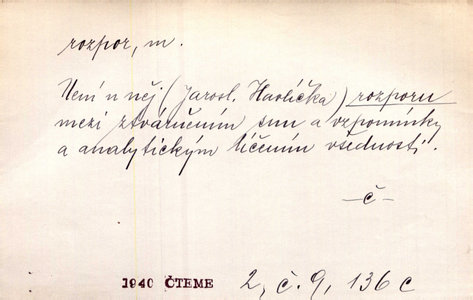 rozpor, m.
Není u něj (Jarosl. Havlíčka) rozporu
mezi ztvárněním snu a vzpomínky
a analytickým líčením všednosti.
-č-
1940 ČTEME 2, č. 9, 136 c